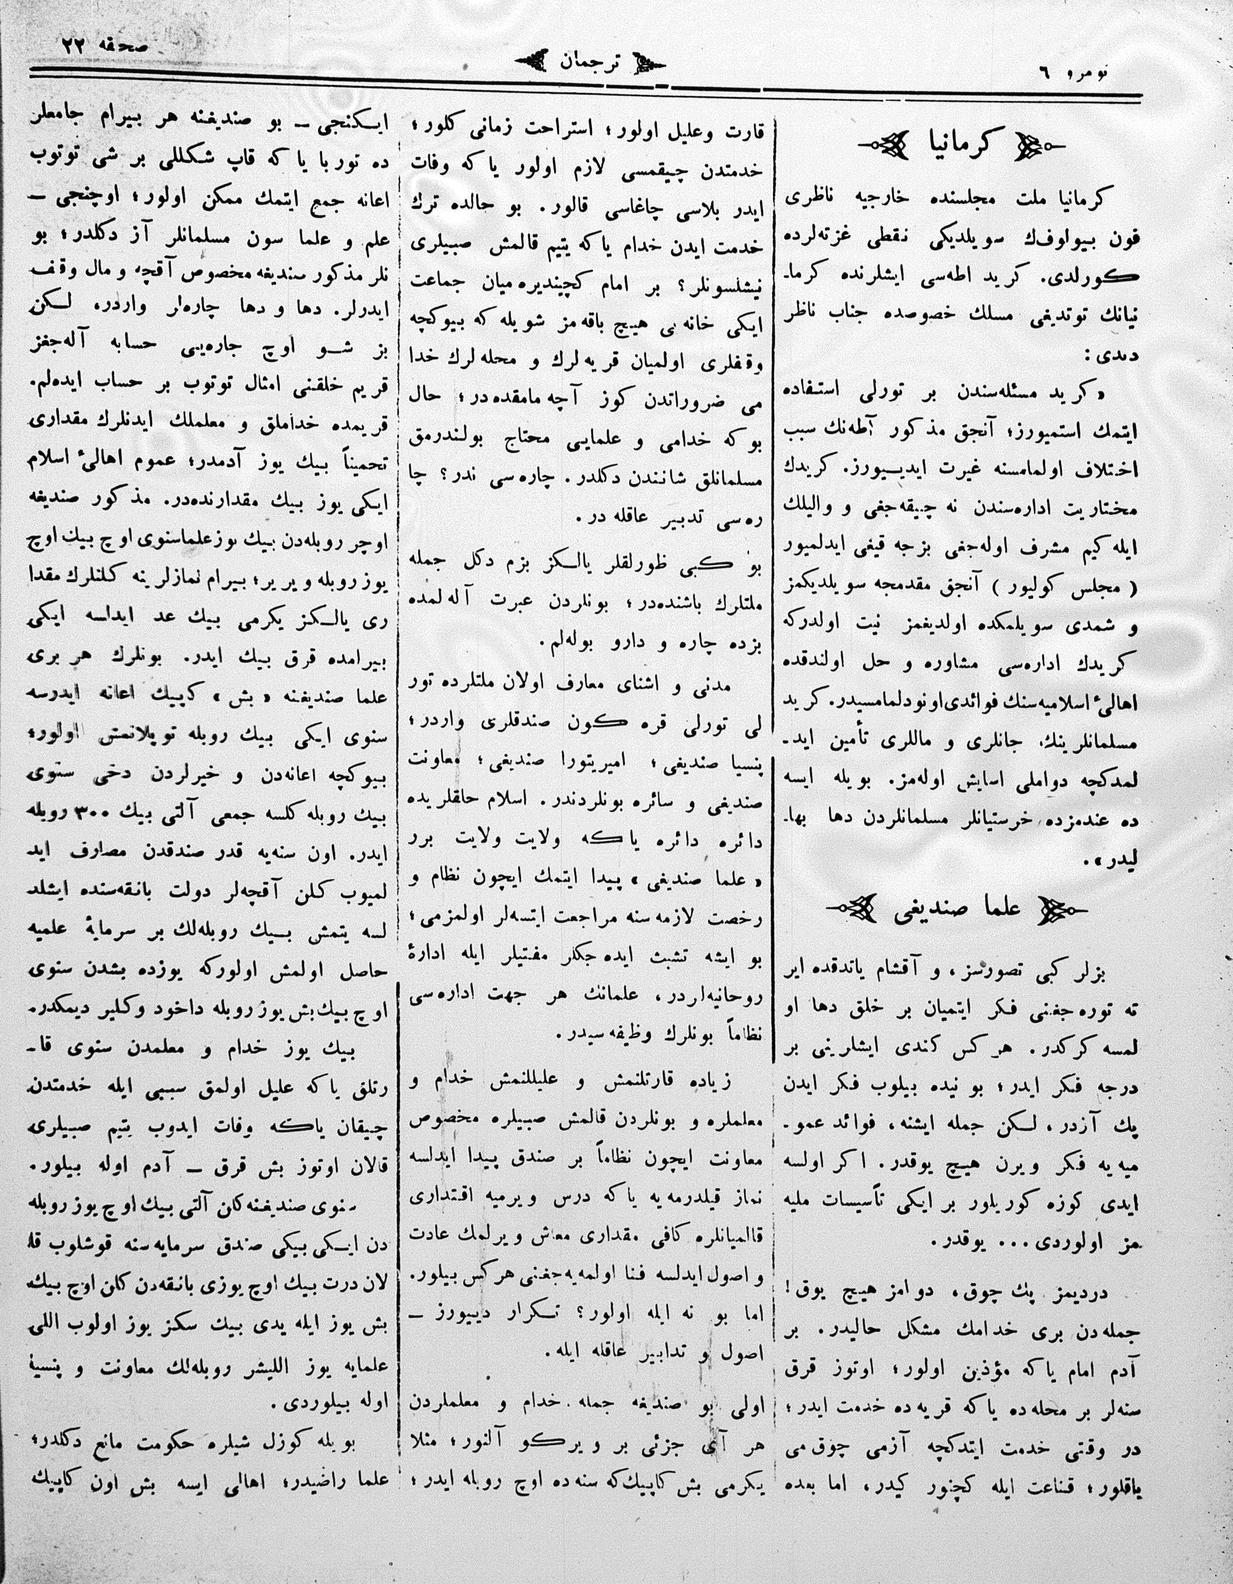 نومرو ٦
ترجمان
صحفه ٢٢
كرمانيا
كرمانيا ملت مجلسنده خارجيه ناظرى
فون بيولوفك سويلديكى نطقى غزته‌لرده
كورلدى. كريد اطه‌سى ايشلرنده كرما-
نيانك توتديغى مسلك خصوصده جناب ناظر
ديدى:
«كريد مسئله‌سندن بر تورلى استفاده
ايتمك استميورز؛ آنجق مذكور آطه‌نك سبب
اختلاف اولمامسنه غيرت ايديورز. كريدك
مختاريت اداره‌سندن نه چيقه‌جغى و واليلك
ايله كيم مشرف اوله‌جغى بزجه قيغى ايدلميور
( مجلس كوليور ) آنجق مقدمجه سويلديكمز
و شمدى سويلمكده اولديغمز نيت اولدركه
كريدك اداره‌سى مشاوره و حل اولندقده
اهالىٔ اسلاميه‌سنك فوائدى اونودلمامسيدر. كريد
مسلمانلرينك جانلرى و ماللرى تأمين ايد-
لمدكچه دواملى اسايش اوله‌مز. بويله ايسه
ده عندمزده خرستيانلر مسلمانلردن دها بها-
ليدر».
علما صنديغى
بزلر كبى تصورسز، و آقشام ياتدقده اير
ته توره‌جغنى فكر ايتميان بر خلق دها او
لمسه كركدر. هركس كندى ايشلرينى بر
درجه فكر ايدر؛ بو نيده بيلوب فكر ايدن
پك آزدر، لكن جمله ايشنه، فوائد عمو-
ميه‌يه فكر ويرن هيچ يوقدر. اكر اولسه
ايدى كوزه كوريلور بر ايكى تأسيسات مليه
مز اولوردى... يوقدر.
درديمز پك چوق، دوامز هيچ يوق!
جمله‌دن برى خدامك مشكل حاليدر. بر
آدم امام ياكه مؤذين اولور؛ اوتوز قرق
سنه‌لر بر محله‌ده ياكه قريه‌ده خدمت ايدر؛
در وقتى خدمت ايتدكچه آزمى چوق‌مى
ياقلور؛ قناعت ايله كچنور كيدر، اما بعده
قارت وعليل اولور؛ استراحت زمانى كلور؛
خدمتدن چيقمسى لازم اولور ياكه وفات
ايدر بلاسى چاغاسى قالور. بو حالده ترك
خدمت ايدن خدام ياكه يتيم قالمش صبيلرى
نيشلسونلر؟ بر امام كچينديره‌ميان جماعت
ايكى خانه‌يى هيچ باقه‌مز شويله كه بيوكچه
وقفلرى اولميان قريه‌لرك و محله‌لرك خدا
مى ضروراتدن كوز آچه‌مامقده‌در؛ حال
بوكه خدامى و علمايى محتاج بولندرمق
مسلمانلق شانندن دكلدر. چاره‌سى ندر؟ چا
ره‌سى تدبير عاقله در.
بو كبى ظورلقلر يالكز بزم دكل جمله
ملتلرك باشنده‌در؛ بونلردن عبرت آله‌لمده
بزده چاره و دارو بوله‌لم.
مدنى و اشناى معارف اولان ملتلرده تور
لى تورلى قره كون صندقلرى واردر؛
پنسيا صنديغى؛ اميريتورا صنديغى؛ معاونت
صنديغى و سائره بونلردندر. اسلام خلقلريده
دائره دائره ياكه ولايت ولايت برر
«علما صنديغى» پيدا ايتمك ايچون نظام و
رخصت لازمه‌سنه مراجعت ايتسه‌لر اولمزمى؛
بو ايشه تشبث ايده‌جكلر مفتيلر ايله ادارۀ
روحانيه‌لردر، علمانك هر جهت اداره‌سى
نظاماً بونلرك وظيفه‌سيدر.
زياده قارتلنمش و عليللنمش خدام و
معلملره و بونلردن قالمش صبيلره مخصوص
معاونت ايچون نظاماً بر صندق پيدا ايدلسه
نماز قيلدرمه‌يه ياكه درس ويرميه اقتدارى
قالميانلره كافى مقدارى معاش ويرلمك عادت
و اصول ايدلسه فنا اولميه‌جغنى هركس بيلور.
اما بو نه ايله اولور؟ تكرار دييورز –
اصول و تدابير عاقله ايله.
اولى بو صنديغه جمله خدام و معلملردن
هر آى جزئى بر ويركو آلنور؛ مثلا
يكرمى بش كاپيك‌كه سنه‌ده اوچ روبله ايدر؛
ايكنجى – بو صنديغنه هر بيرام جامعلر
ده توربا ياكه قاپ شكللى بر شى توتوب
اعانه جمع ايتمك ممكن اولور؛ اوچنجى –
علم و علما سون مسلمانلر آز دكلدر؛ بو
نلر مذكور سنديغه مخصوص آقچه و مال وقف
ايدرلر. دها و دها چاره‌لر واردر، لكن
بز شو اوچ چاره‌يى حسابه آله‌جغز
قريم خلقنى امثال توتوب بر حساب ايده‌لم.
قريمده خداملق و معلملك ايدنلرك مقدارى
تخميناً بيك يوز آدمدر؛ عموم اهالىٔ اسلام
ايكى يوز بيك مقدارنده‌در. مذكور صنديغه
اوچر روبله‌دن بيك يوز علما سنوى اوچ بيك اوچ
يوز روبله ويرير؛ بيرام نمازلرينه كلنلرك مقدا
رى يالكز يكرمى بيك عد ايدلسه ايكى
بيرامده قرق بيك ايدر. بونلرك هر برى
علما صنديغنه «بش» كاپيك اعانه ايدرسه
سنوى ايكى بيك روبله توپلانمش اولور؛
بيوكچه اعانه‌دن و خيرلردن دخى سنوى
بيك روبله كلسه جمعى آلتى بيك ٣٠٠ روبله
ايدر. اون سنه‌يه قدر صندقدن مصارف ايد
لميوب كلن آقچه‌لر دولت بانقه‌سنده ايشلد
لسه يتمش بيك روبله‌لك بر سرمايۀ علميه
حاصل اولمش اولوركه يوزده بشدن سنوى
اوچ بيك بش يوز روبله داخود وكلير ديمكدر.
بيك يوز خدام و معلمدن سنوى قا-
رتلق ياكه عليل اولمق سببى ايله خدمتدن
چيقان ياكه وفات ايدوب يتيم صبيلرى
قالان اوتوز بش قرق – آدم اوله بيلور.
سنوى صنديغنه كلن آلتى بيك اوچ يوز روبله
دن ايكى بيكى صندق سرمايه‌سنه قوشلوب قا
لان درت بيك اوچ يوزى بانقه‌دن كلن اوچ بيك
بش يوز ايله يدى بيك سكز يوز اولوب اللى
علمايه يوز الليشر روبله‌لك معاونت و پنسيه
اوله بيلوردى.
بويله كوزل شيلره حكومت مانع دكلدر؛
علما راضيدر؛ اهالى ايسه بش اون كاپيك